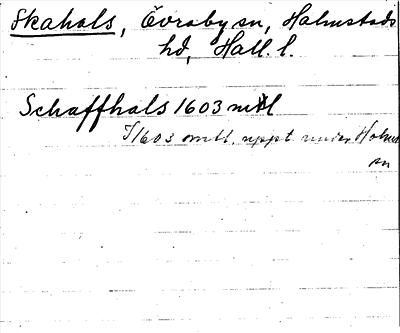 Skahals, Övraby sn, Halmstads
hd, Hall. l.
Schaffhals 1603 mtl
I 1603 omtl. uppt. under Holms
sn